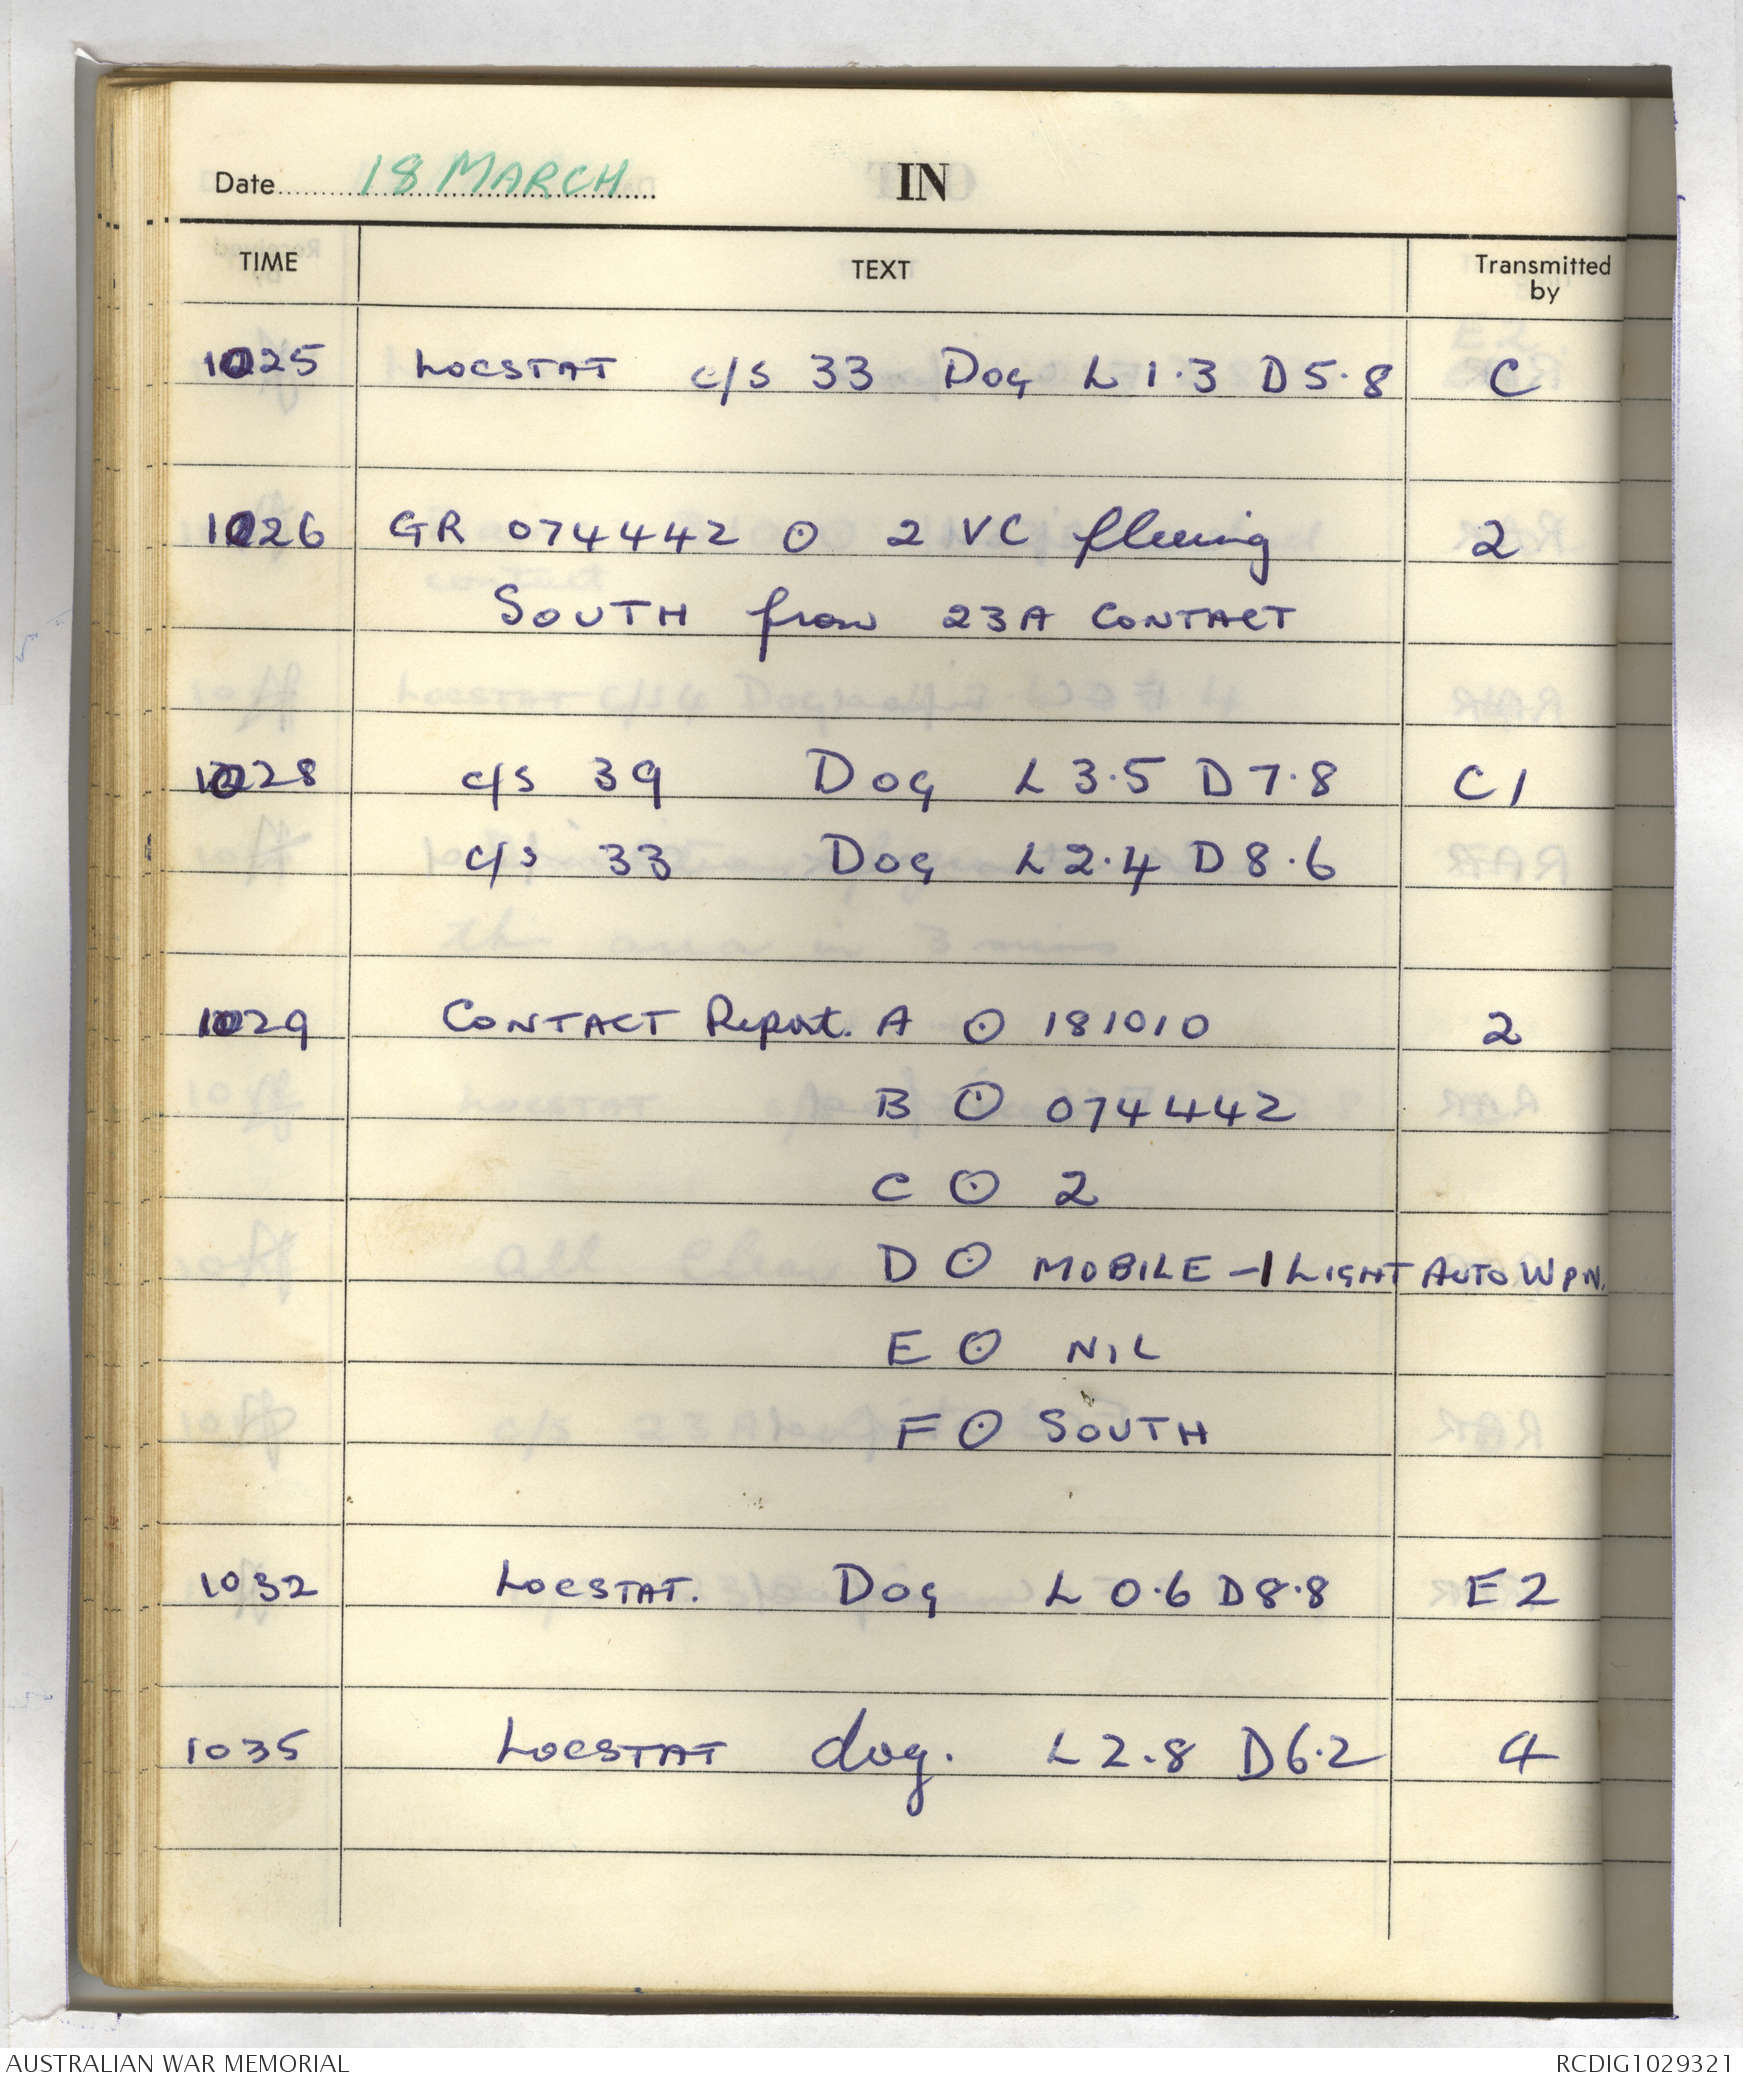 Date 18 MARCH IN
TIME TEXT Transmitted by
1025 LOCSTAT c/s 33 Dog L 1.3 D 5.8 C
1026 GR 074442 ⊙ 2 VC fleeing 2
SOUTH from 23A CONTACT
1028 c/s 39 Dog L 3.5 D 7.8 C1
c/s 33 Dog L 2.4 D 8.6
1029 CONTACT Report. A ⊙ 181010 2
B ⊙ 074442
C ⊙ 2
D ⊙ MOBILE - 1 LIGHT AUTO WPN.
E ⊙ NIL
F ⊙ SOUTH
1032 LOCSTAT. Dog L 0.6 D 8.8 E2
1035 LOCSTAT dog. L 2.8 D 6.2 4
AUSTRALIAN WAR MEMORIAL RCDIG1029321